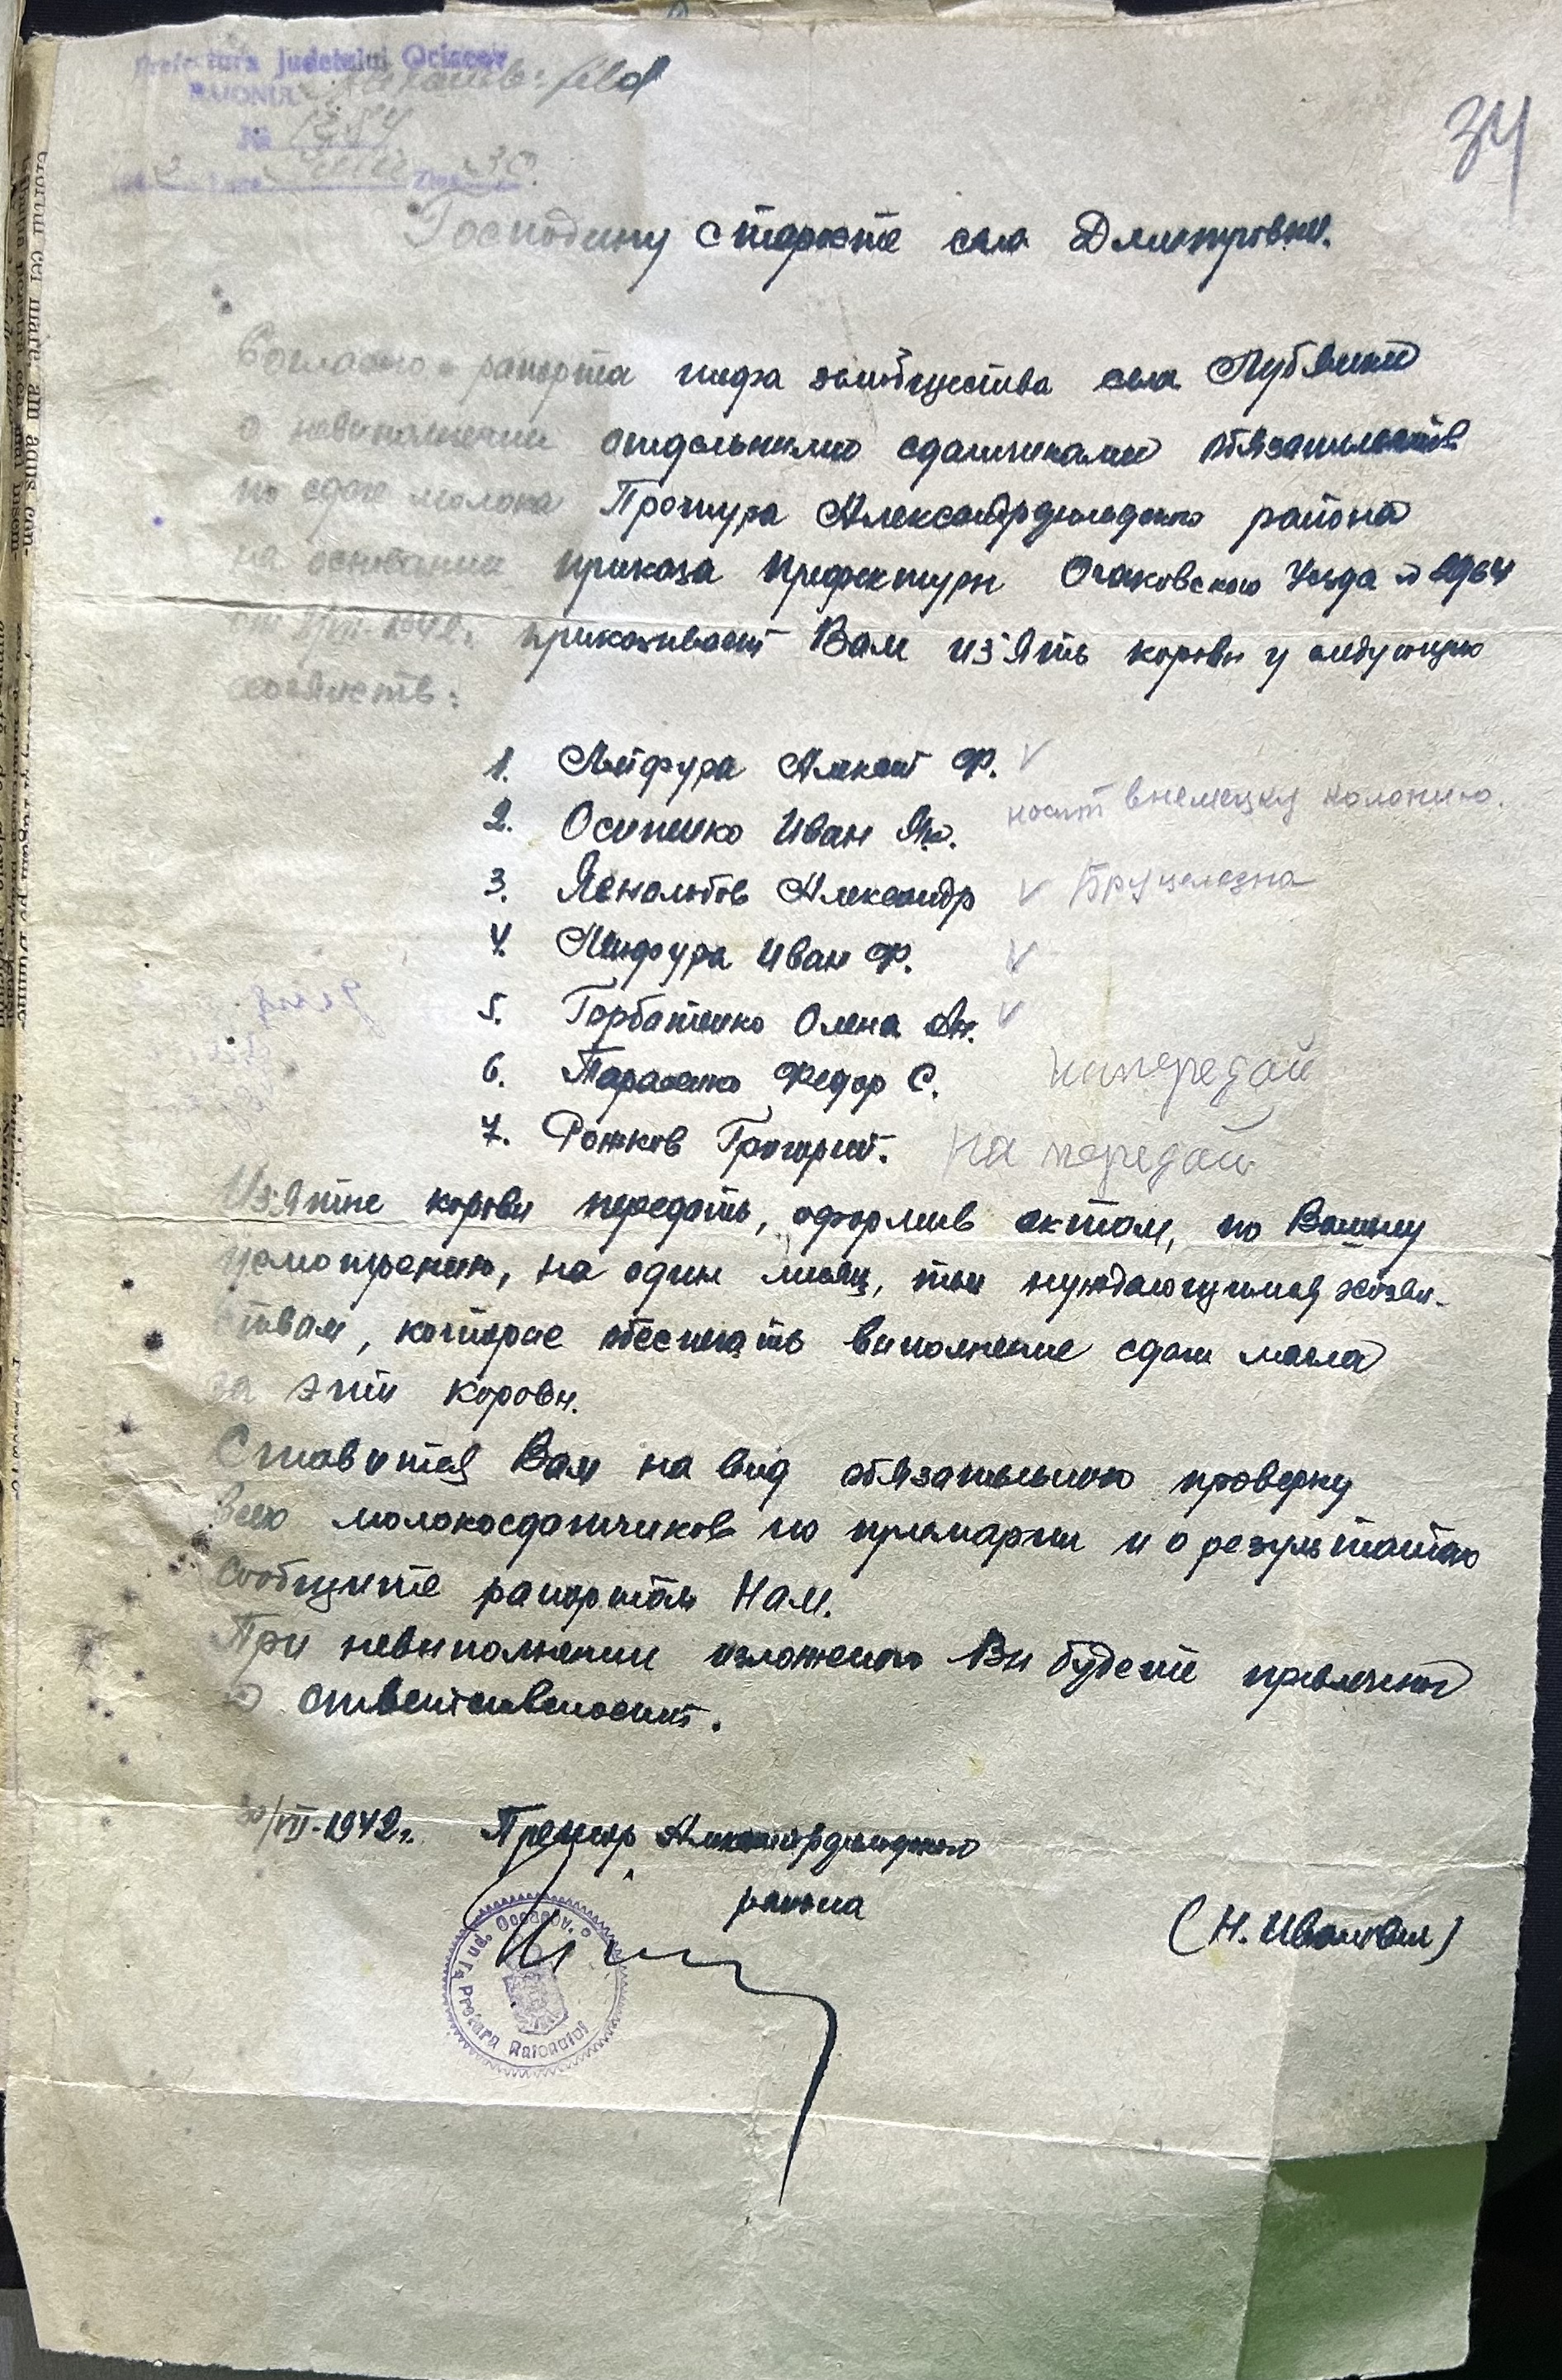 Prefectura Judetului Oceacov
RAIONUL
№ 1284
34
Господину Старосте села Дмитровки.
Согласно рапорта шефа землобщества села
о невиполнении отдельними сдатчиками обязательств
по сдаче молока Претура Александрфельдского района
на основании приказа Префектури Очаковского Уезда № 2964
приказивает Вам из'ять корови у следующих
хозяйств:
1. Алексей Ф. V
2. Осипенко Иван Як. носит в немецку колонию.
3. Александр V Бруцелезна
4. Иван Ф. V
5. Горбатенко Олена Ан. V
6. Тарасенко Федор С. ниперидай
7. Рожков Григорий. на перидай
Из'ятие корови передать, оформив актом, по Вашему
усмотрению, на один месяц, тем нуждающимся хозяй-
ствам, которие обеспечать виполнение сдачи масла
за эти корови.
Ставится Вам на вид обязательную проверку
всех молокосдатчиков по примарии и о результатах
сообщите рапортом Нам.
При невиполнении изложеного Ви будете привлечени
к ответствености.
30/VII-1942 г. Претор Александрфельдского
района
(Н. Иванович)
Jud. Oceacov.
Pretura Raionului